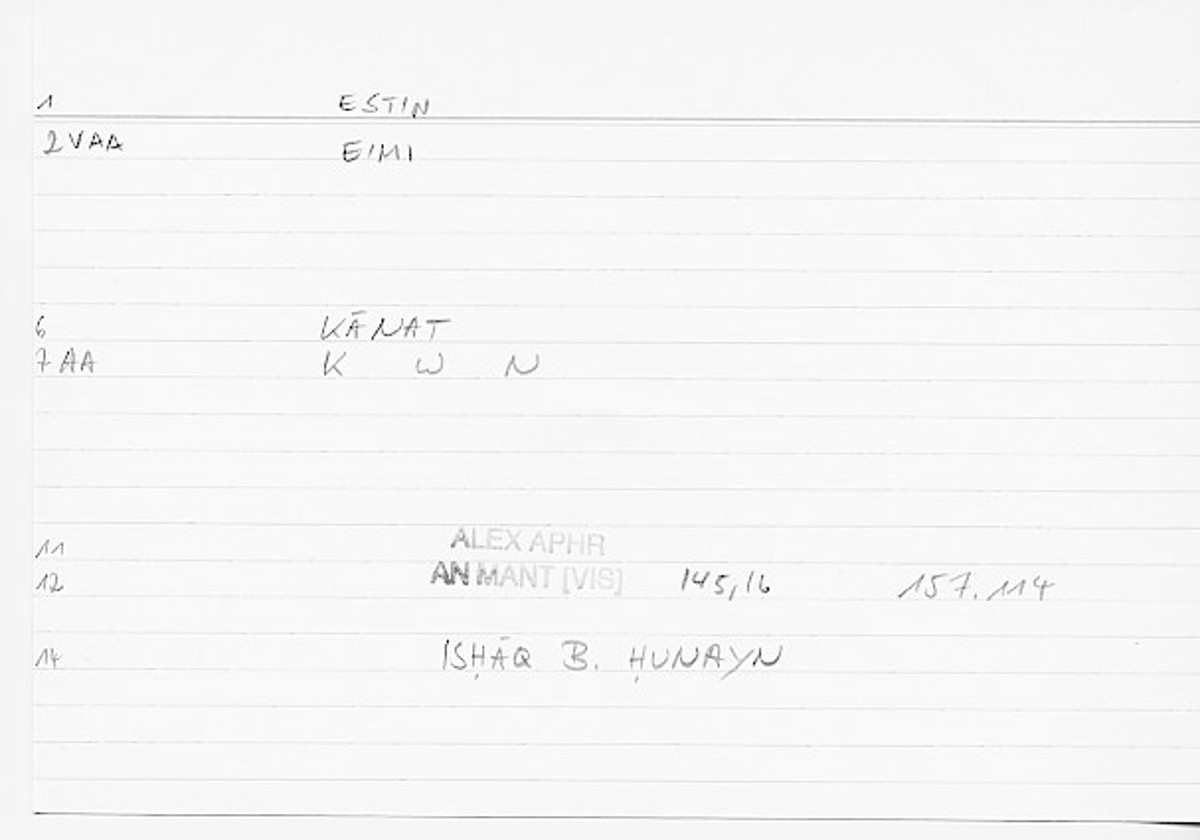 1 ESTIN
2VAA EIMI
6 KĀNAT
7AA K W N
11 ALEX APHR
12 AN MANT [VIS] 145,16 157.114
14 ISḤĀQ B. ḤUNAYN